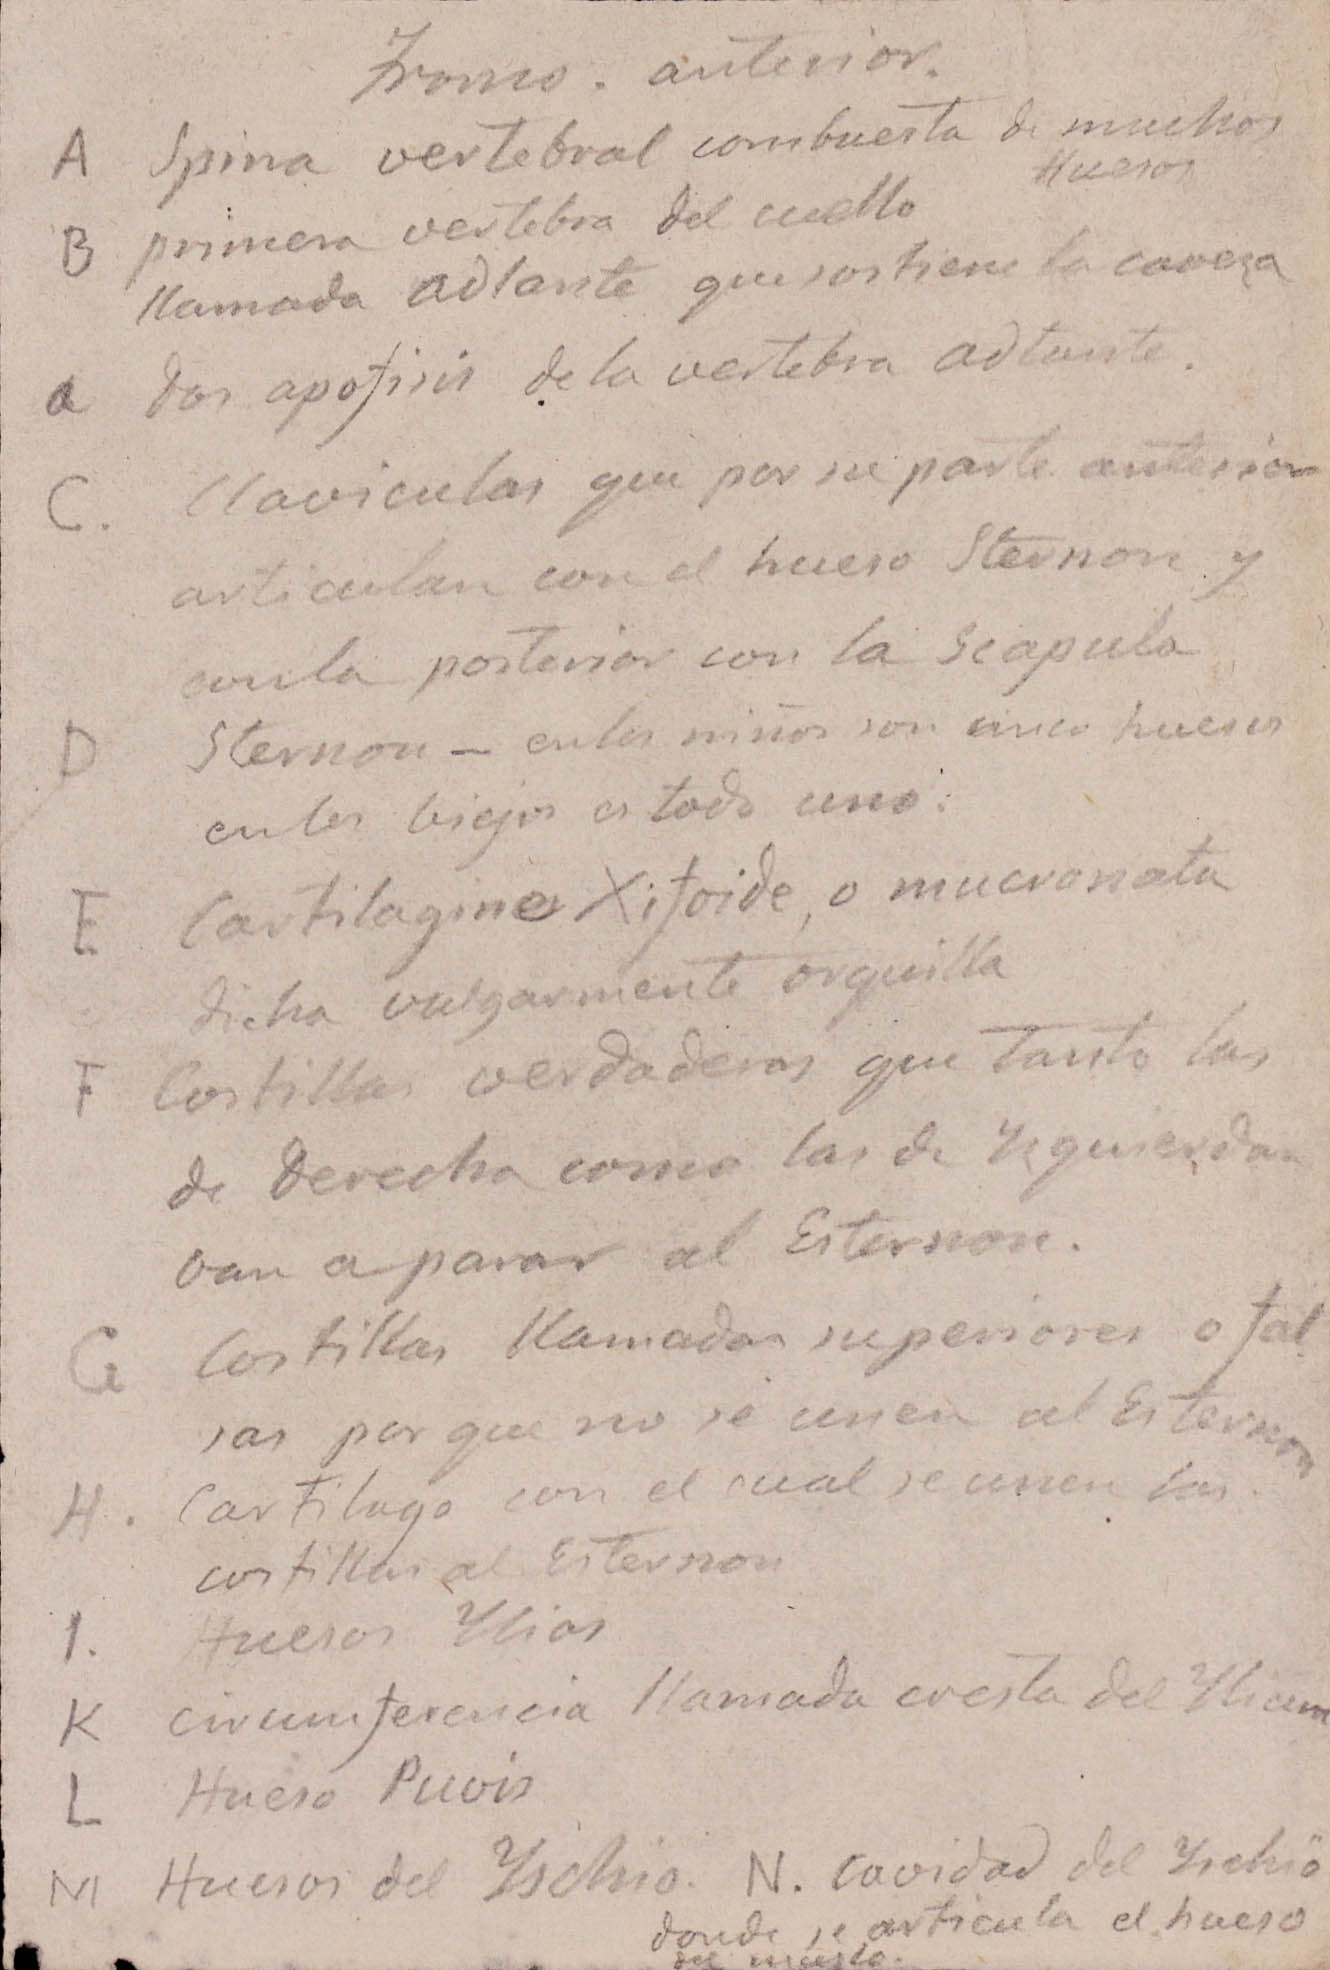 Tronco. anterior.
A Spina vertebral combuesta de muchos
Huesos
B primera vertebra del cuello
llamada adlante que sostiene la caveza
a dos apofisis de la vertebra adlante.
C. Claviculas que por su parte anterior
articulan con el hueso Sternon y
con la posterior con la Scapula
D Sternon - en los niños son cinco huesos
en los biejos es todo uno.
E Cartilagine Xifoide, o mucronata
dicha vulgarmente orquilla
F Costillas verdaderas que tanto las
de derecha como las de Yzquierda
van a parar al Esternon.
G Costillas llamadas superiores o fal
sas por que no se unen al Esternon
H. Cartilago con el cual se unen las
costillas al Esternon
I. Huesos Ylios
K circumferencia llamada cresta del Ylium
L Hueso Puvis
M Huesos del Yschio. N. Cavidad del Yschio
donde se articula el hueso
del muslo.